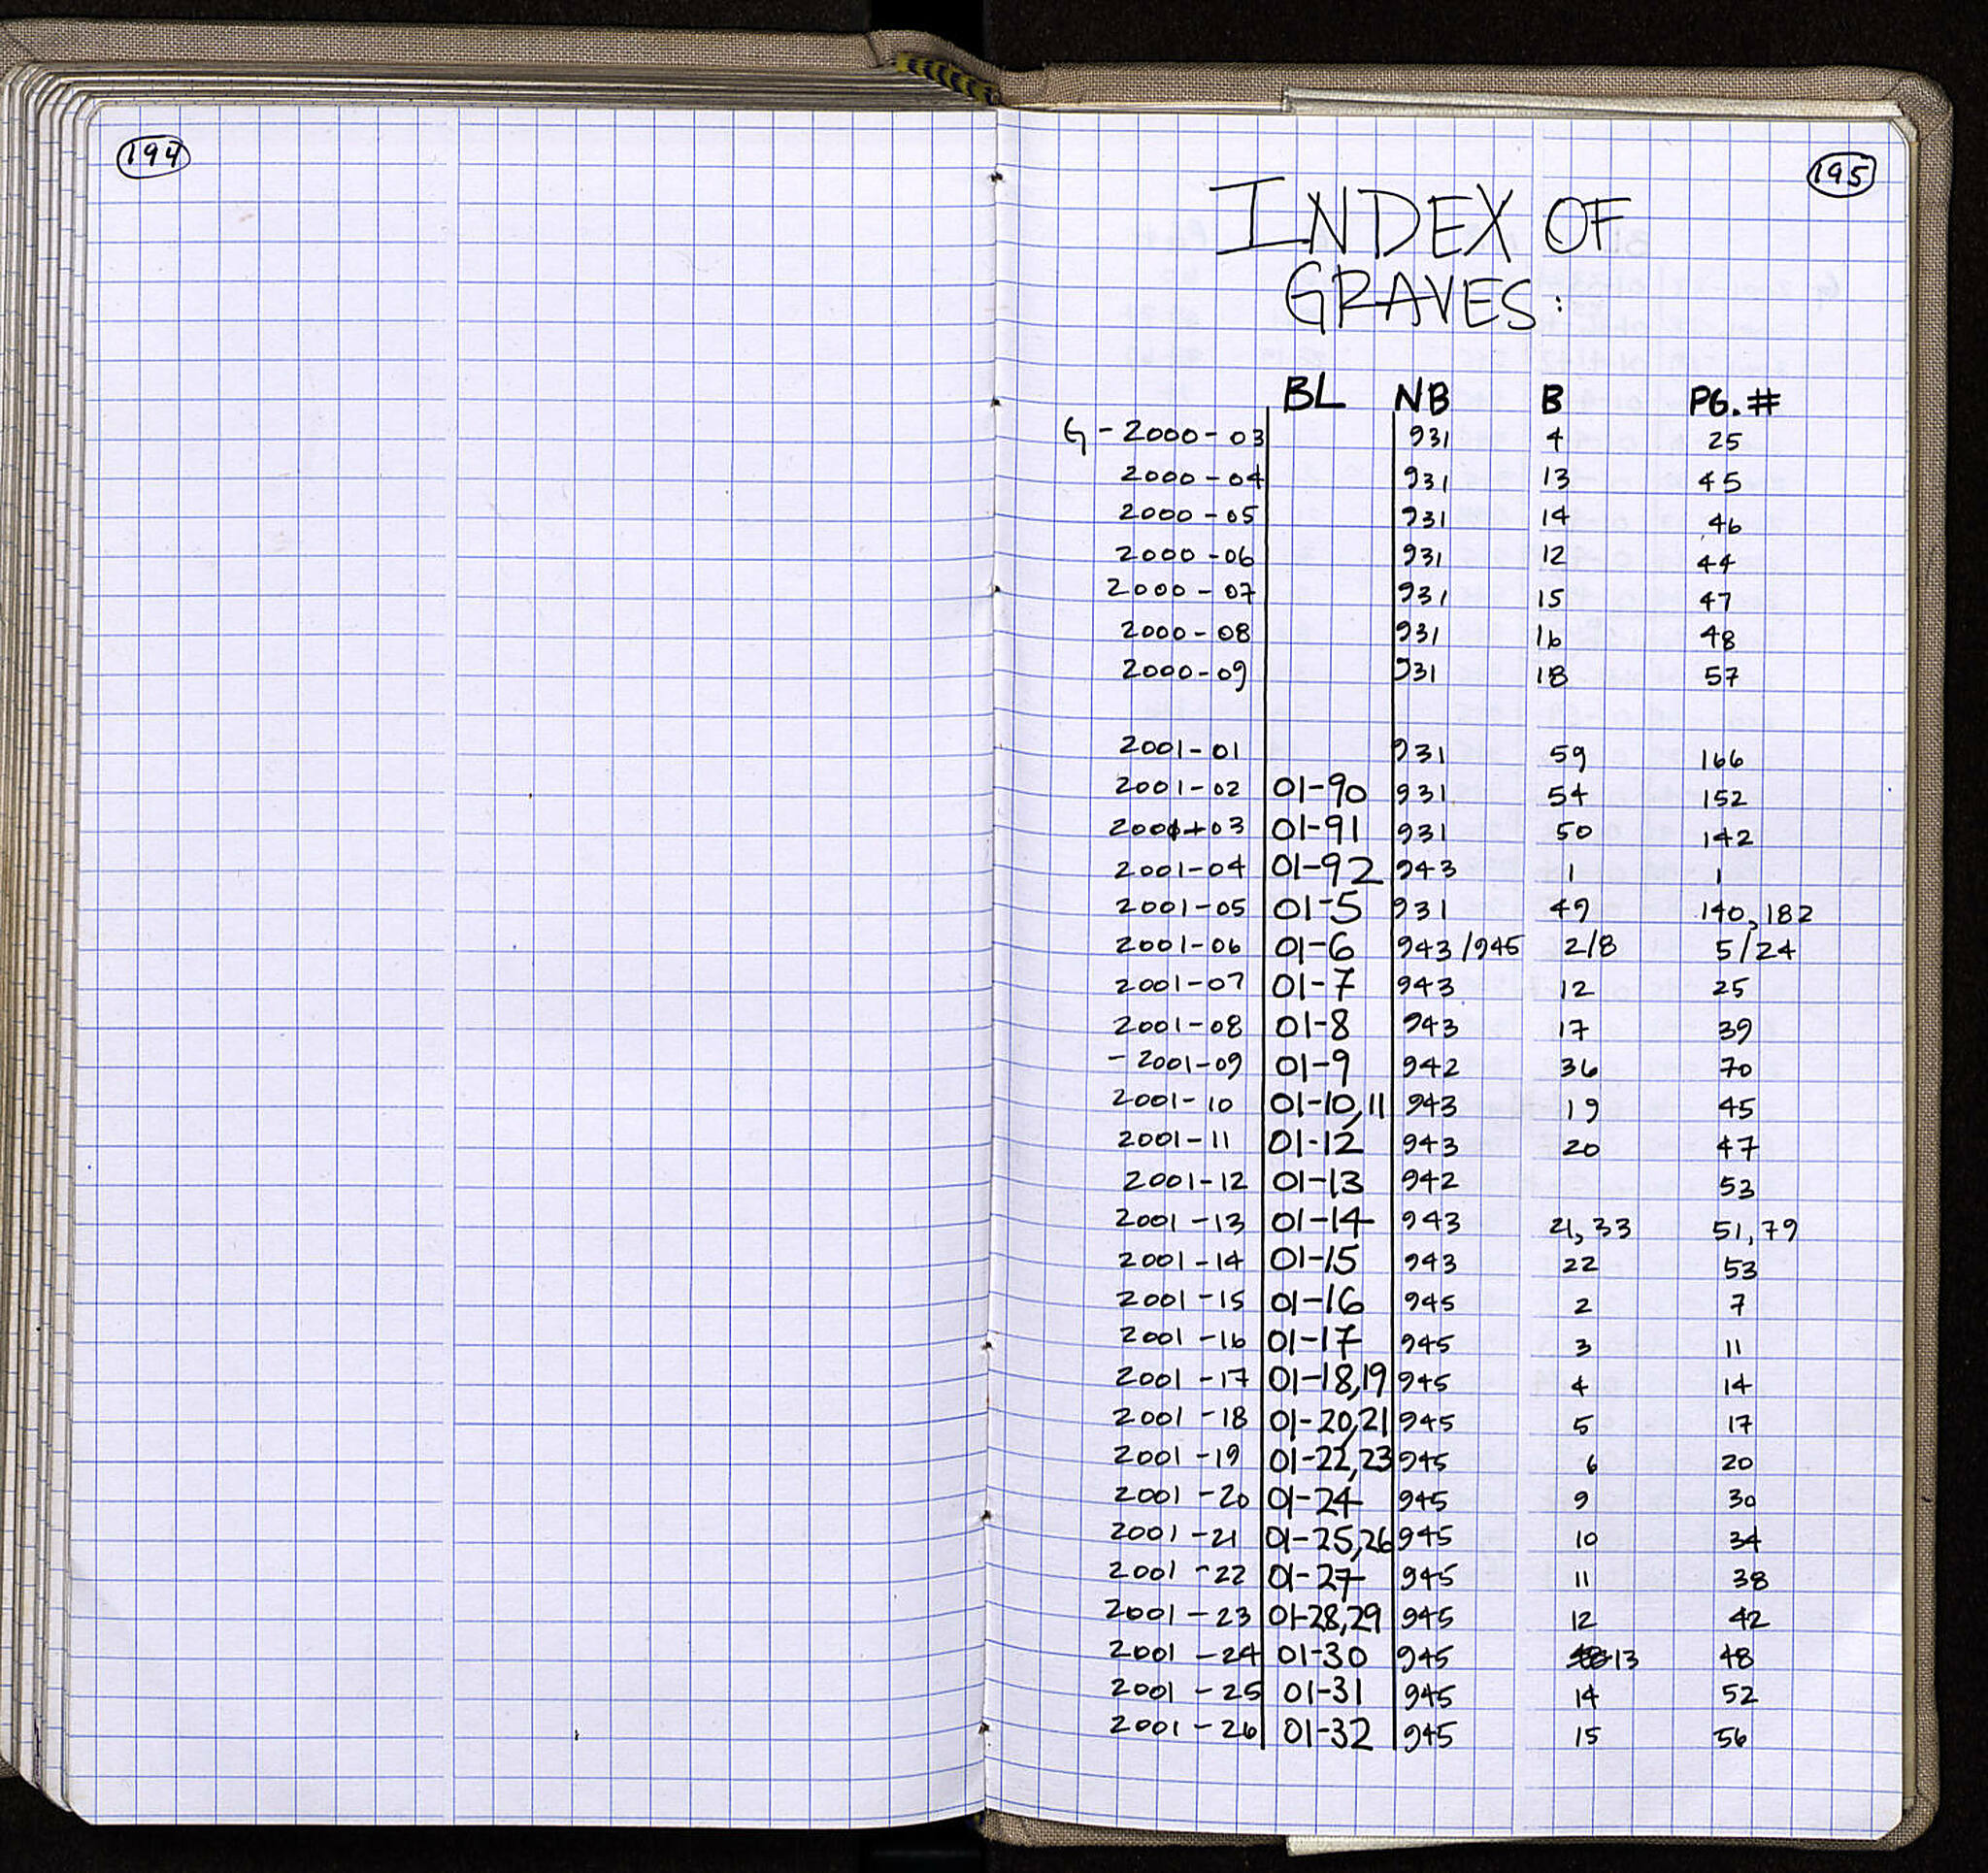 194
195
INDEX OF
GRAVES:
BL NB B PG. #
G - 2000 - 03 931 4 25
2000 - 04 931 13 45
2000 - 05 931 14 46
2000 - 06 931 12 44
2000 - 07 931 15 47
2000 - 08 931 16 48
2000 - 09 931 18 57
2001 - 01 931 59 166
2001 - 02 01-90 931 54 152
2001 - 03 01-91 931 50 142
2001 - 04 01-92 943 1 1
2001 - 05 01-5 931 49 140, 182
2001 - 06 01-6 943/945 2/8 5/24
2001 - 07 01-7 943 12 25
2001 - 08 01-8 943 17 39
- 2001 - 09 01-9 942 36 70
2001 - 10 01-10,11 943 19 45
2001 - 11 01-12 943 20 47
2001 - 12 01-13 942 53
2001 - 13 01-14 943 21, 33 51, 79
2001 - 14 01-15 943 22 53
2001 - 15 01-16 945 2 7
2001 - 16 01-17 945 3 11
2001 - 17 01-18,19 945 4 14
2001 - 18 01-20,21 945 5 17
2001 - 19 01-22,23 945 6 20
2001 - 20 01-24 945 9 30
2001 - 21 01-25,26 945 10 34
2001 - 22 01-27 945 11 38
2001 - 23 01-28,29 945 12 42
2001 - 24 01-30 945 13 48
2001 - 25 01-31 945 14 52
2001 - 26 01-32 945 15 56